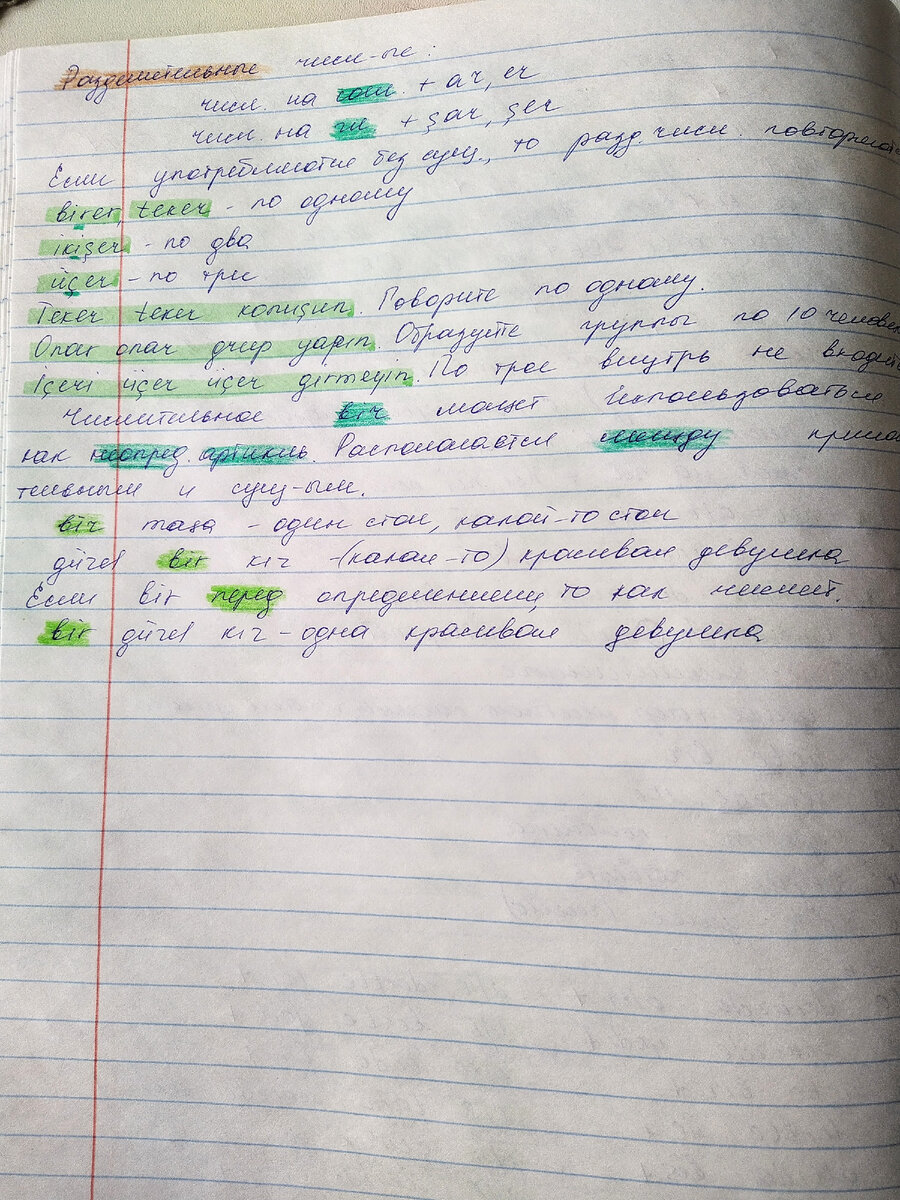 Разделительные числ-ые:
числ. на согл. + ar, er
числ. на гл + şar, şer
Если употребляются без сущ., то разд. числ. повторяются
birer, teker - по одному
ikişer - по два
üçer - по трое
Teker teker konuşun. Говорите по одному.
Onar onar grup yapın. Образуйте группы по 10 человек
İçeri üçer üçer girmeyin. По трое внутрь не входите
Числительное bir может использоваться
как неопред. артикль. Располагается между прилага
тельным и сущ-ым.
bir masa - один стол, какой-то стол
güzel bir kız - (какая-то) красивая девушка
Если bir перед определением, то как числит.
bir güzel kız - одна красивая девушка